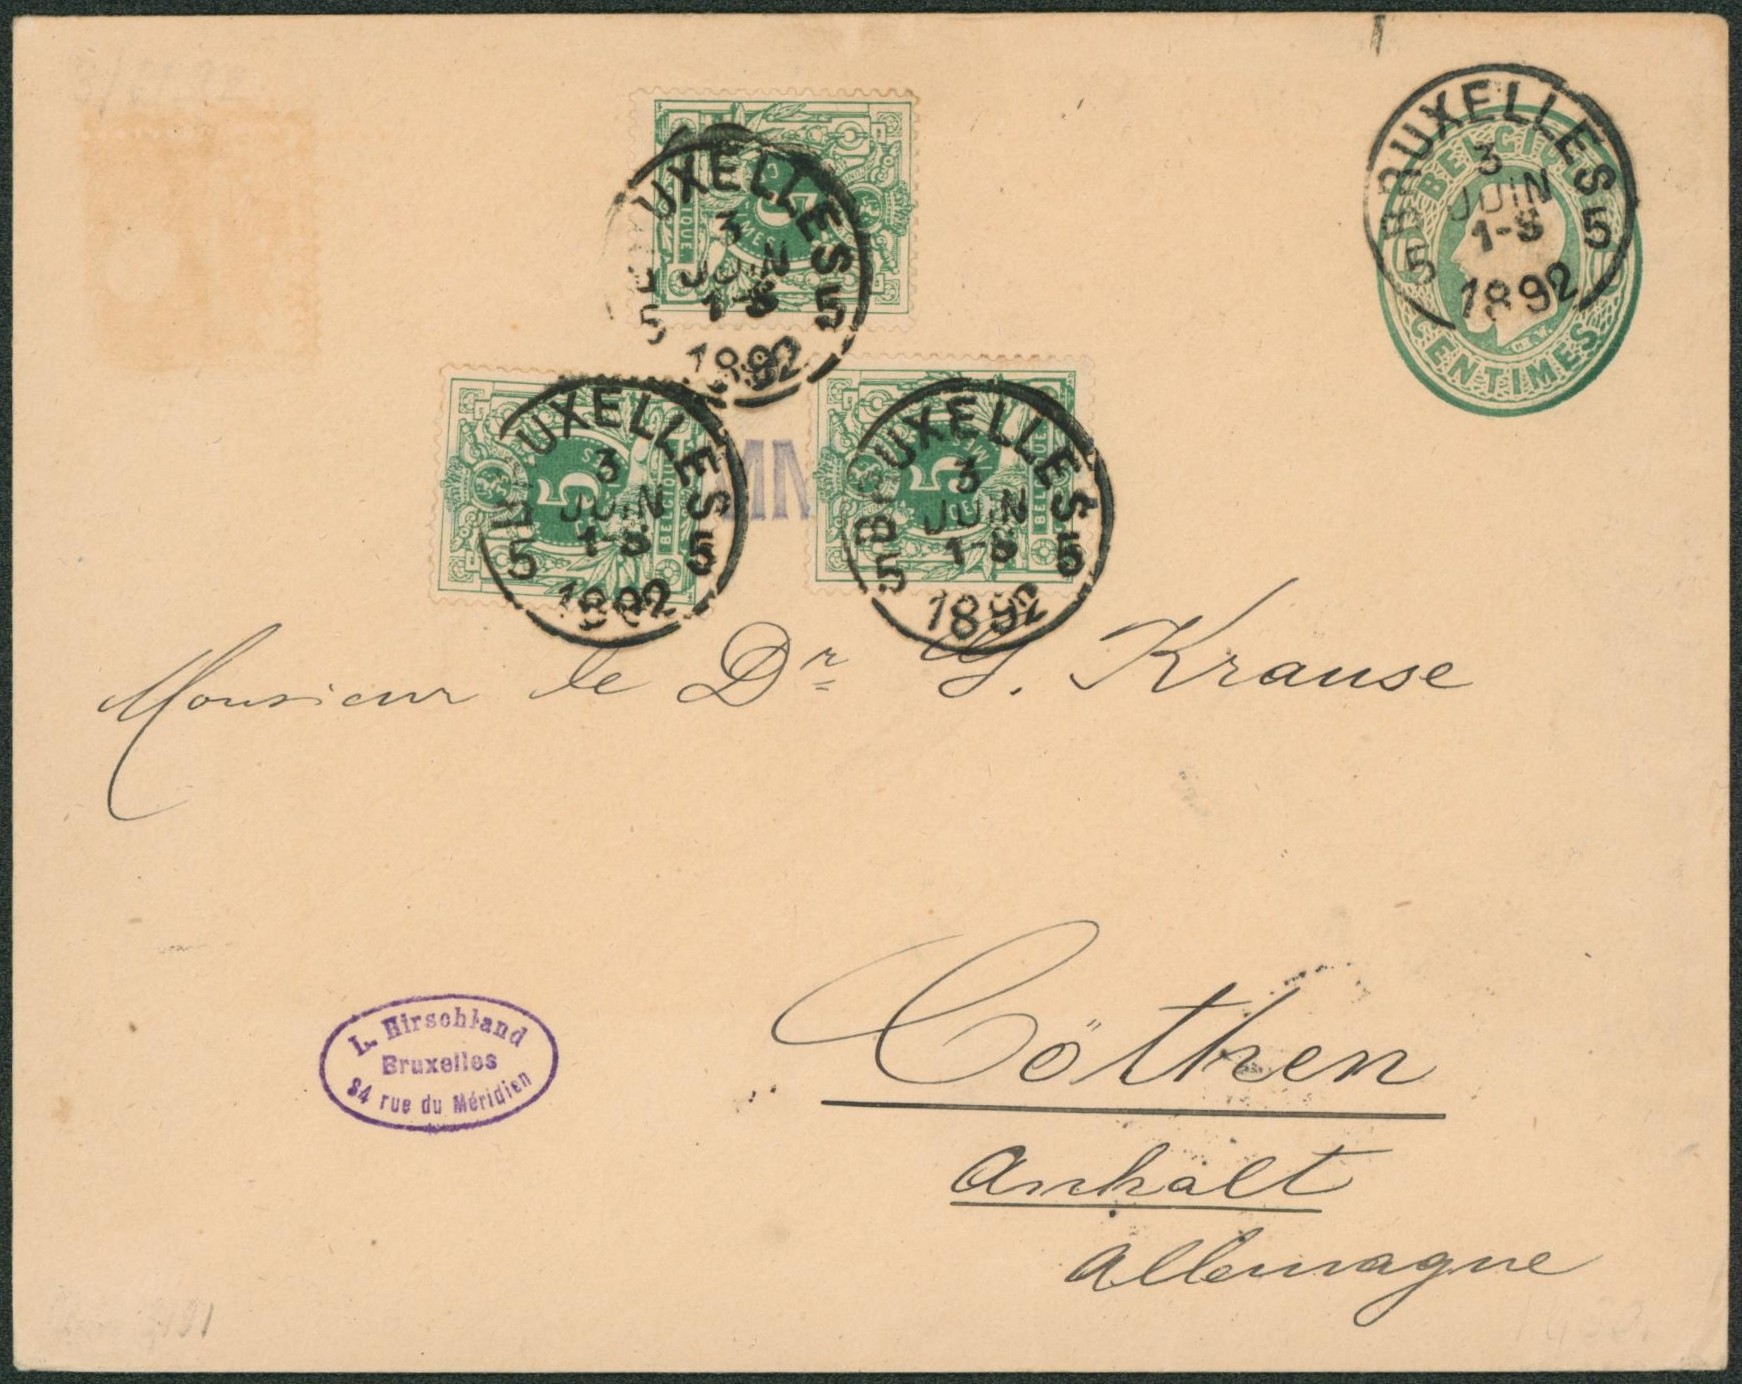 BRUXELLES
3
JUIN
1-S
1892
5 5
BELGIQUE
CENTIMES
UXELLES
3
JUIN
1-S
1892
5 5
5
UXELLES
3
JUIN
1-S
1892
5 5
5
BELGIQUE
BRUXELLES
3
JUIN
1-S
1892
5 5
5
BELGIQUE
MM
Monsieur le Dr G. Krause
Cöthen
Anhalt
Allemagne
L. Hirschland
Bruxelles
84 rue du Méridien